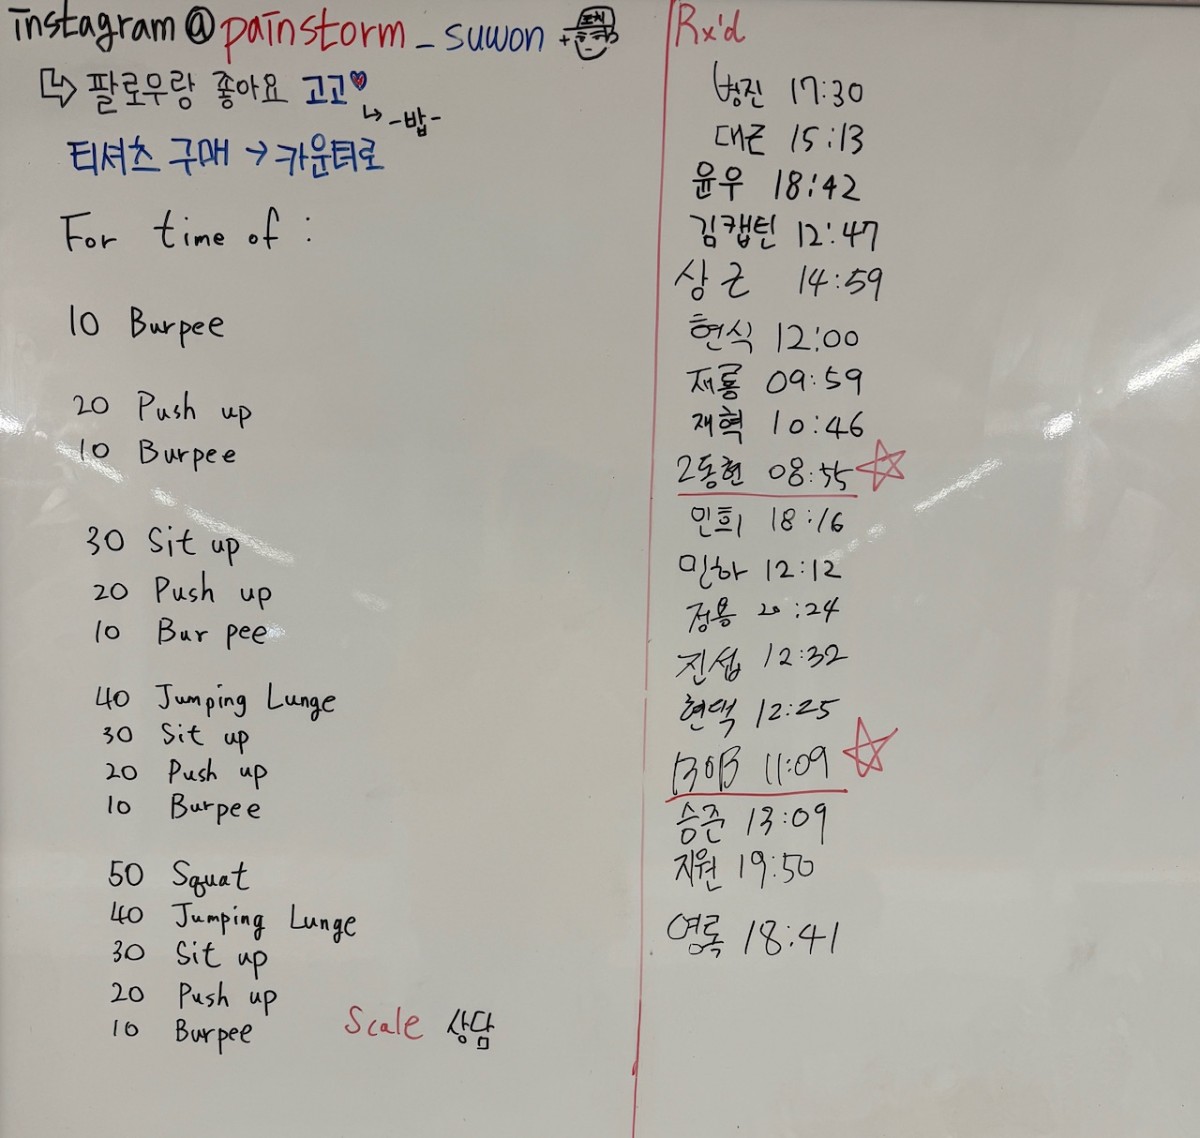 instagram@painstorm_suwon
팔로우랑 좋아요 고고
-밥-
티셔츠 구매 → 카운터로
For time of :
10 Burpee
20 Push up
10 Burpee
30 Sit up
20 Push up
10 Burpee
40 Jumping Lunge
30 Sit up
20 Push up
10 Burpee
50 Squat
40 Jumping Lunge
30 Sit up
20 Push up
10 Burpee
Scale 상담
Rx'd
병진 17:30
대근 15:13
윤우 18:42
김캡틴 12:47
상근 14:59
현식 12:00
재룡 09:59
재혁 10:46
2동현 08:55
민희 18:16
민하 12:12
정용 20:24
진섭 12:32
현택 12:25
BOB 11:09
승준 13:09
지원 19:50
영록 18:41